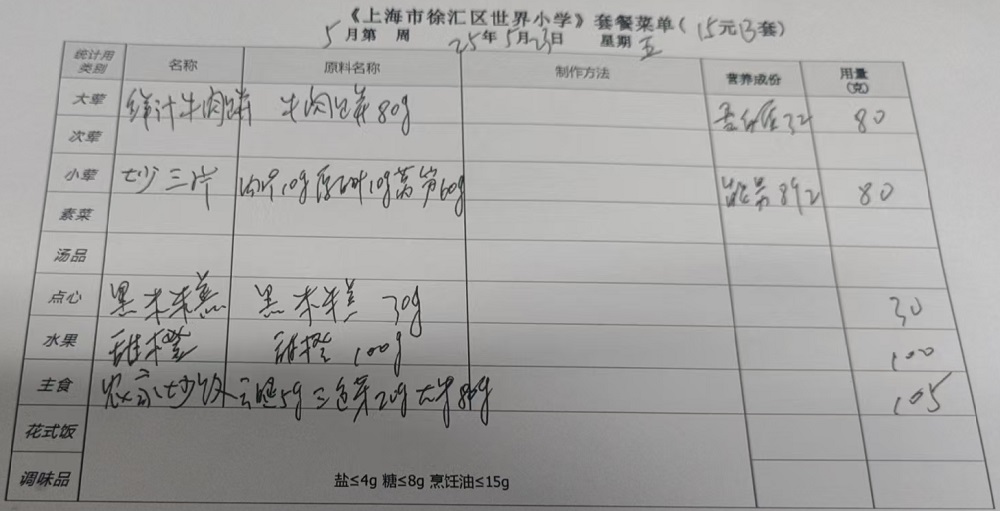 《上海市徐汇区世界小学》套餐菜单(15元B套)
5月第 周 25年5月23日 星期五
统计用类别 名称 原料名称 制作方法 营养成份 用量(克)
大荤 鲜汁牛肉饼 牛肉饼80g 蛋白质32 80
次荤
小荤 炒三片 肉片10g 10g莴笋60g 能量892 80
素菜
汤品
点心 黑米糕 黑米糕 30g 30
水果 甜橙 甜橙 100g 100
主食 农家炒饭 云腿5g三色菜20g大米80g 105
花式饭
调味品 盐≤4g 糖≤8g 烹饪油≤15g